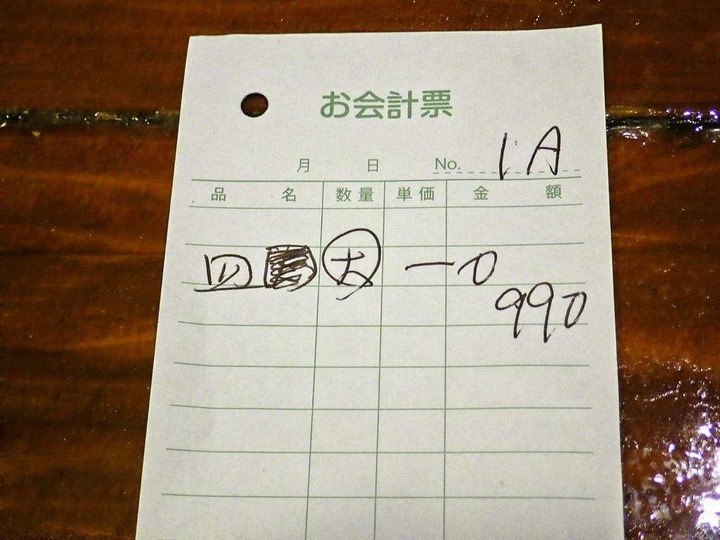 お会計票
月 日 No. 1A
品名 数量 単価 金額
四 大 一 0
990